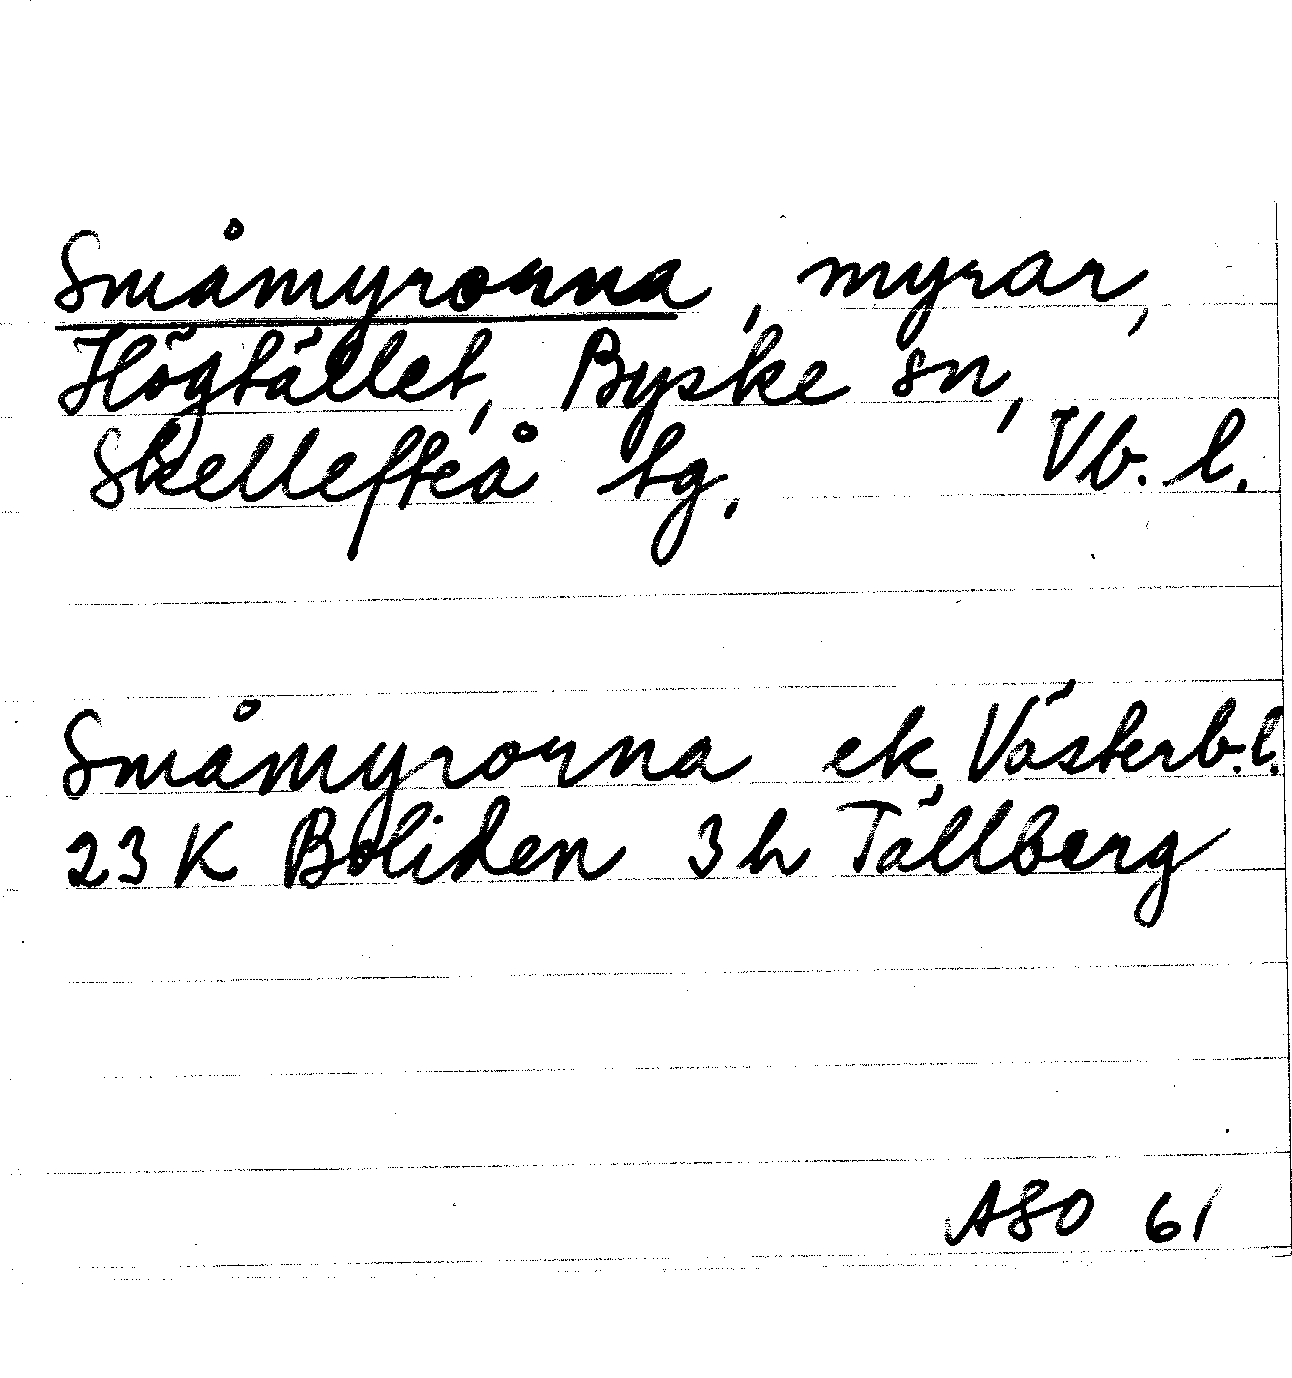 Småmyrorna, myrar,
Högtället, Byske sn,
Skellefteå tg. Vb. l.
Småmyrorna ek Västerb.l.
23 K Boliden 3 h Tällberg
ASO 61